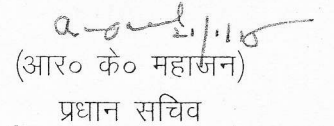 (आर० के० महाजन)
प्रधान सचिव